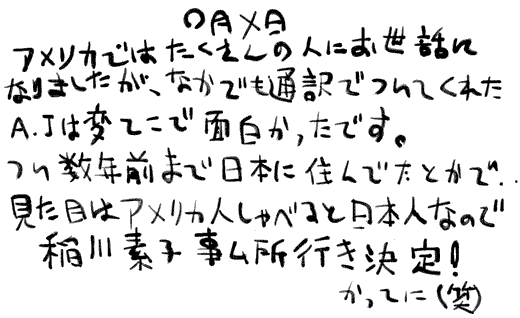 ○月×日
アメリカではたくさんの人にお世話に
なりましたが、なかでも通訳でついてくれた
A.Jは変てこで面白かったです。
つい数年前まで日本に住んでたとかで‥
見た目はアメリカ人しゃべると日本人なので
稲川素子事ム所行き決定!
かってに(笑)